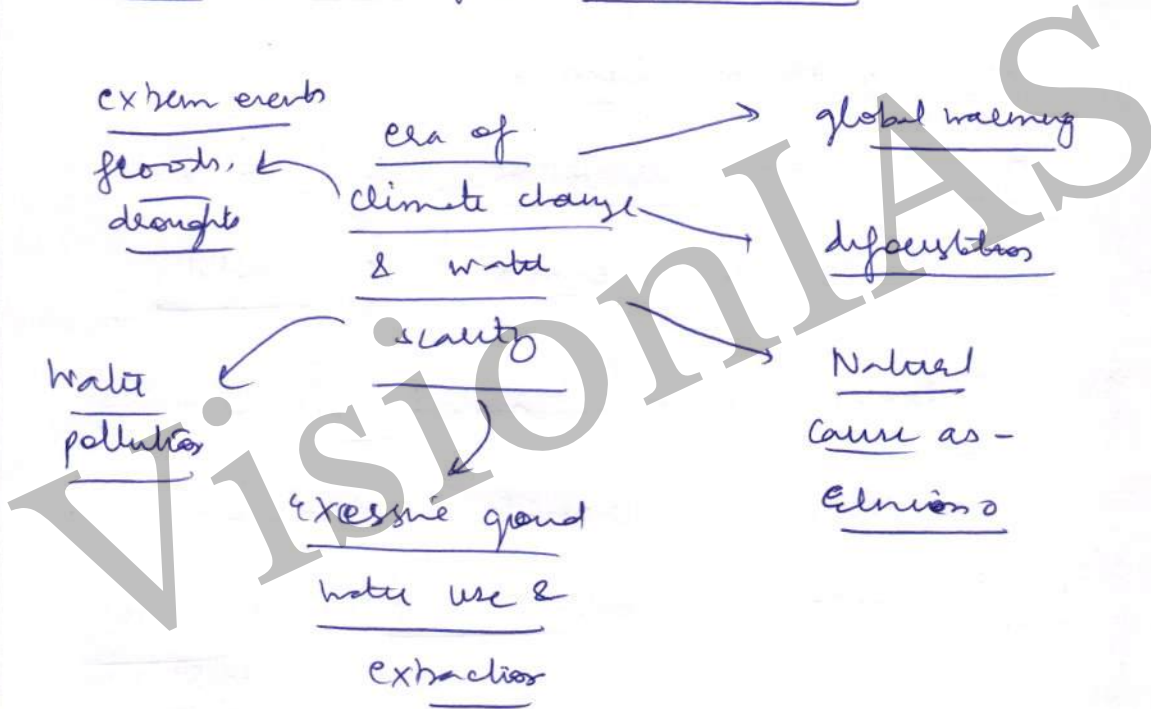 extrem events
floods,
droughts
era of
climate change
& water
scarcity
global warming
deforestation
Natural
cause as -
Elnino
Water
pollution
Excessive ground
water use &
extraction
VisionIAS